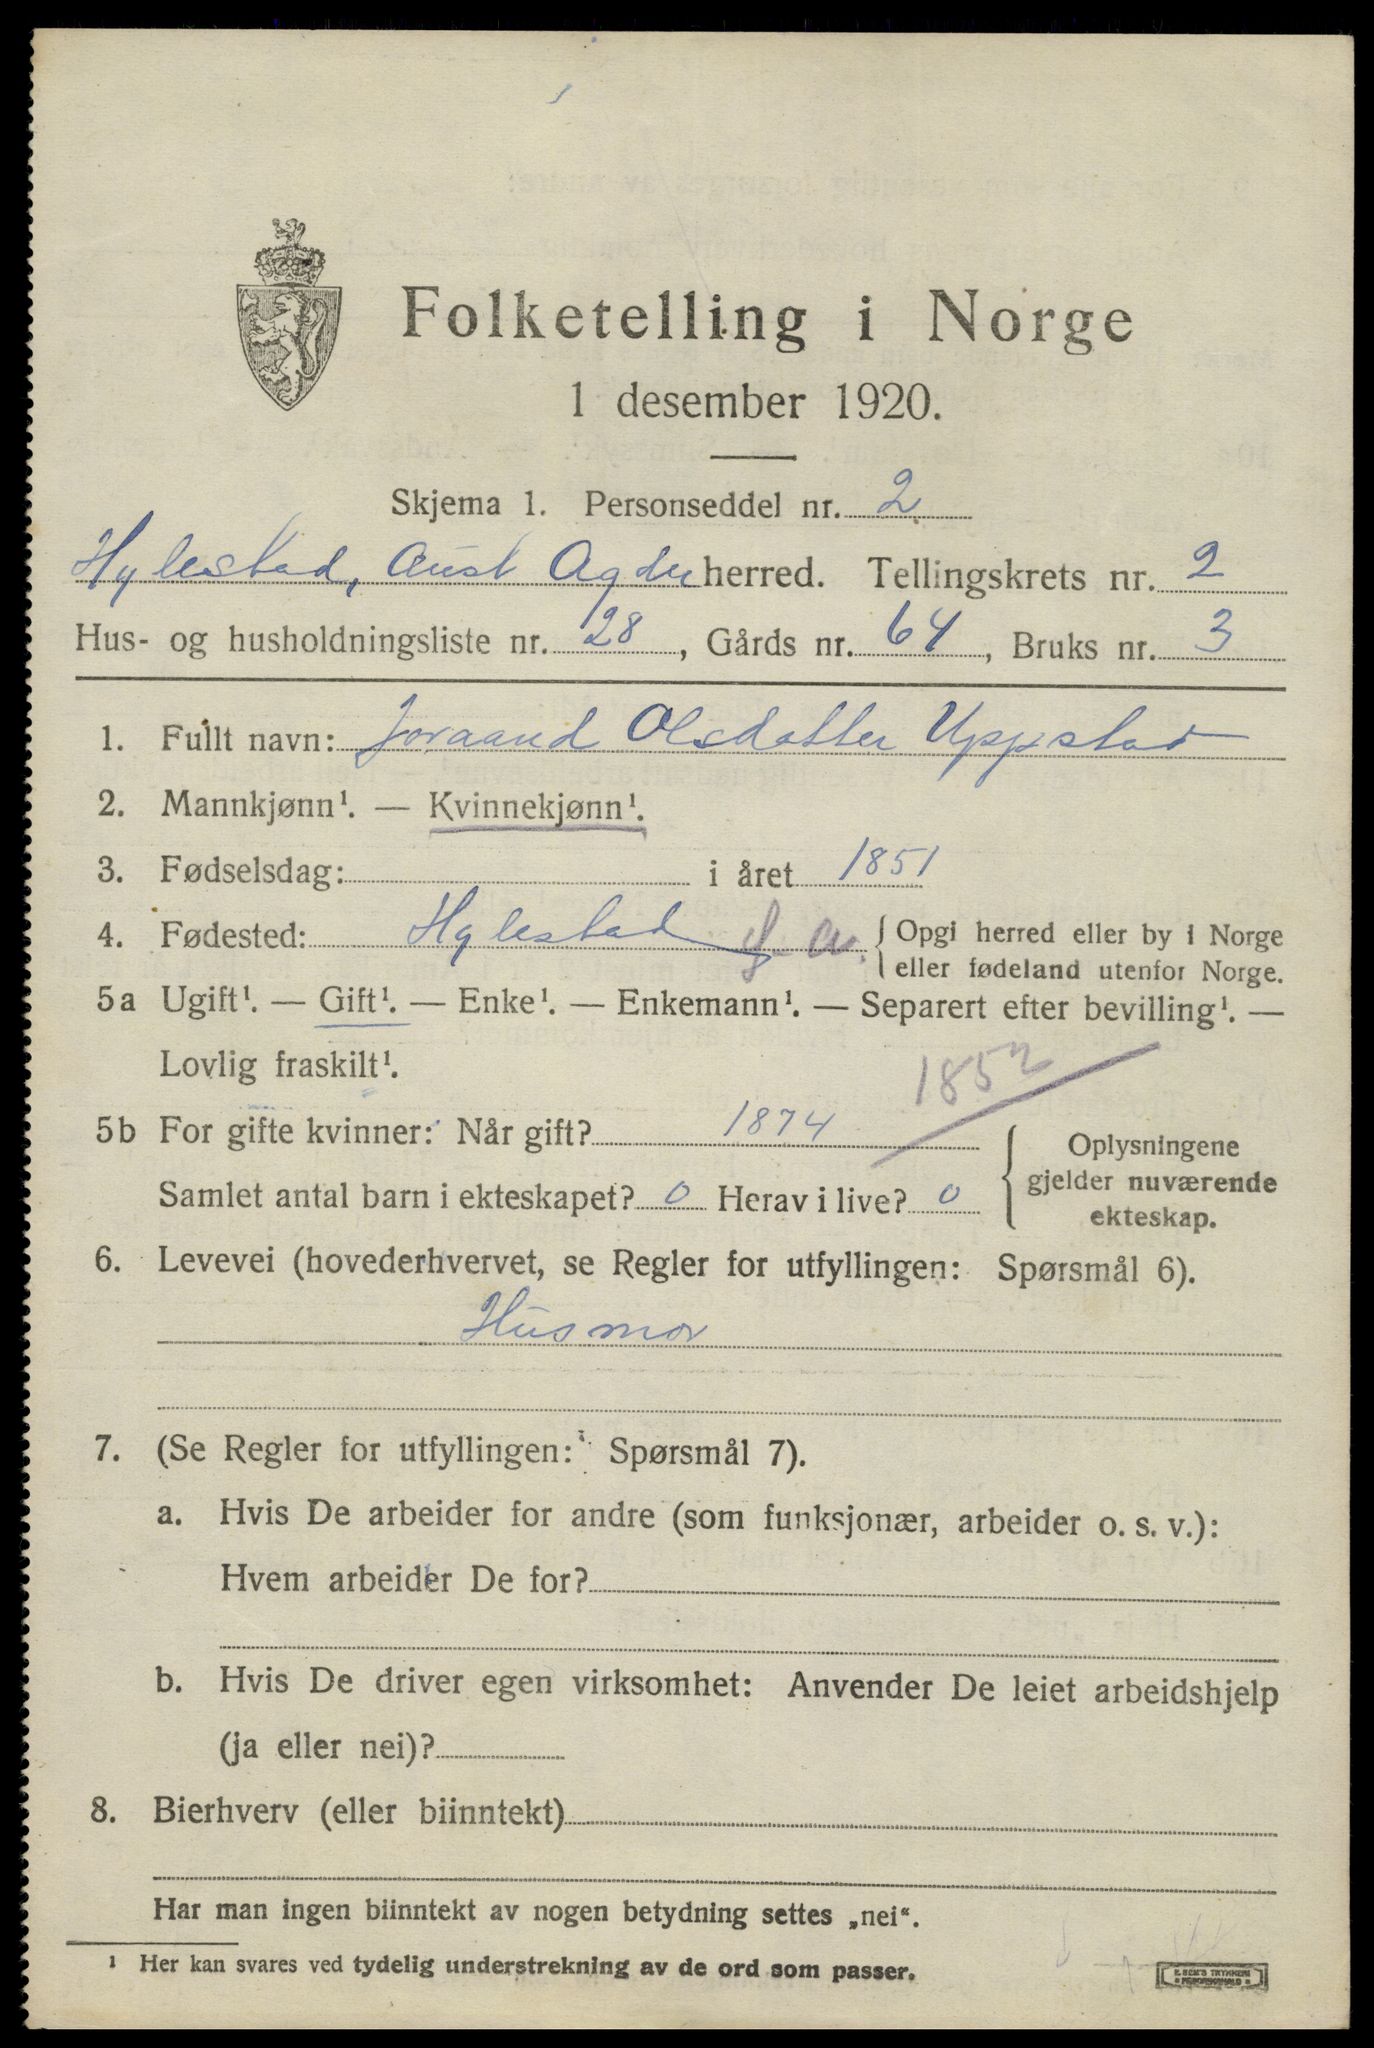 Folketelling i Norge
1 desember 1920.
Skjema 1. Personseddel nr. 2
Hylestad, Aust Agder herred. Tellingskrets nr. 2
Hus- og husholdningsliste nr. 28, Gårds nr. 64, Bruks nr. 3
1. Fullt navn: Joraand Olsdatter Uppstad
2. Mannkjønn¹. — Kvinnekjønn¹.
3. Fødselsdag: i året 1851
4. Fødested: Hylestad { Opgi herred eller by i Norge
eller fødeland utenfor Norge.
5a Ugift¹. — Gift¹. — Enke¹. — Enkemann¹. — Separert efter bevilling¹. —
Lovlig fraskilt¹.
1852
5b For gifte kvinner: Når gift? 1874
Samlet antal barn i ekteskapet? 0 Herav i live? 0
{ Oplysningene
gjelder nuværende
ekteskap.
6. Levevei (hovederhvervet, se Regler for utfyllingen: Spørsmål 6).
Husmor
7. (Se Regler for utfyllingen: Spørsmål 7).
a. Hvis De arbeider for andre (som funksjonær, arbeider o. s. v.):
Hvem arbeider De for?
b. Hvis De driver egen virksomhet: Anvender De leiet arbeidshjelp
(ja eller nei)?
8. Bierhverv (eller biinntekt)
Har man ingen biinntekt av nogen betydning settes „nei“.
¹ Her kan svares ved tydelig understrekning av de ord som passer.